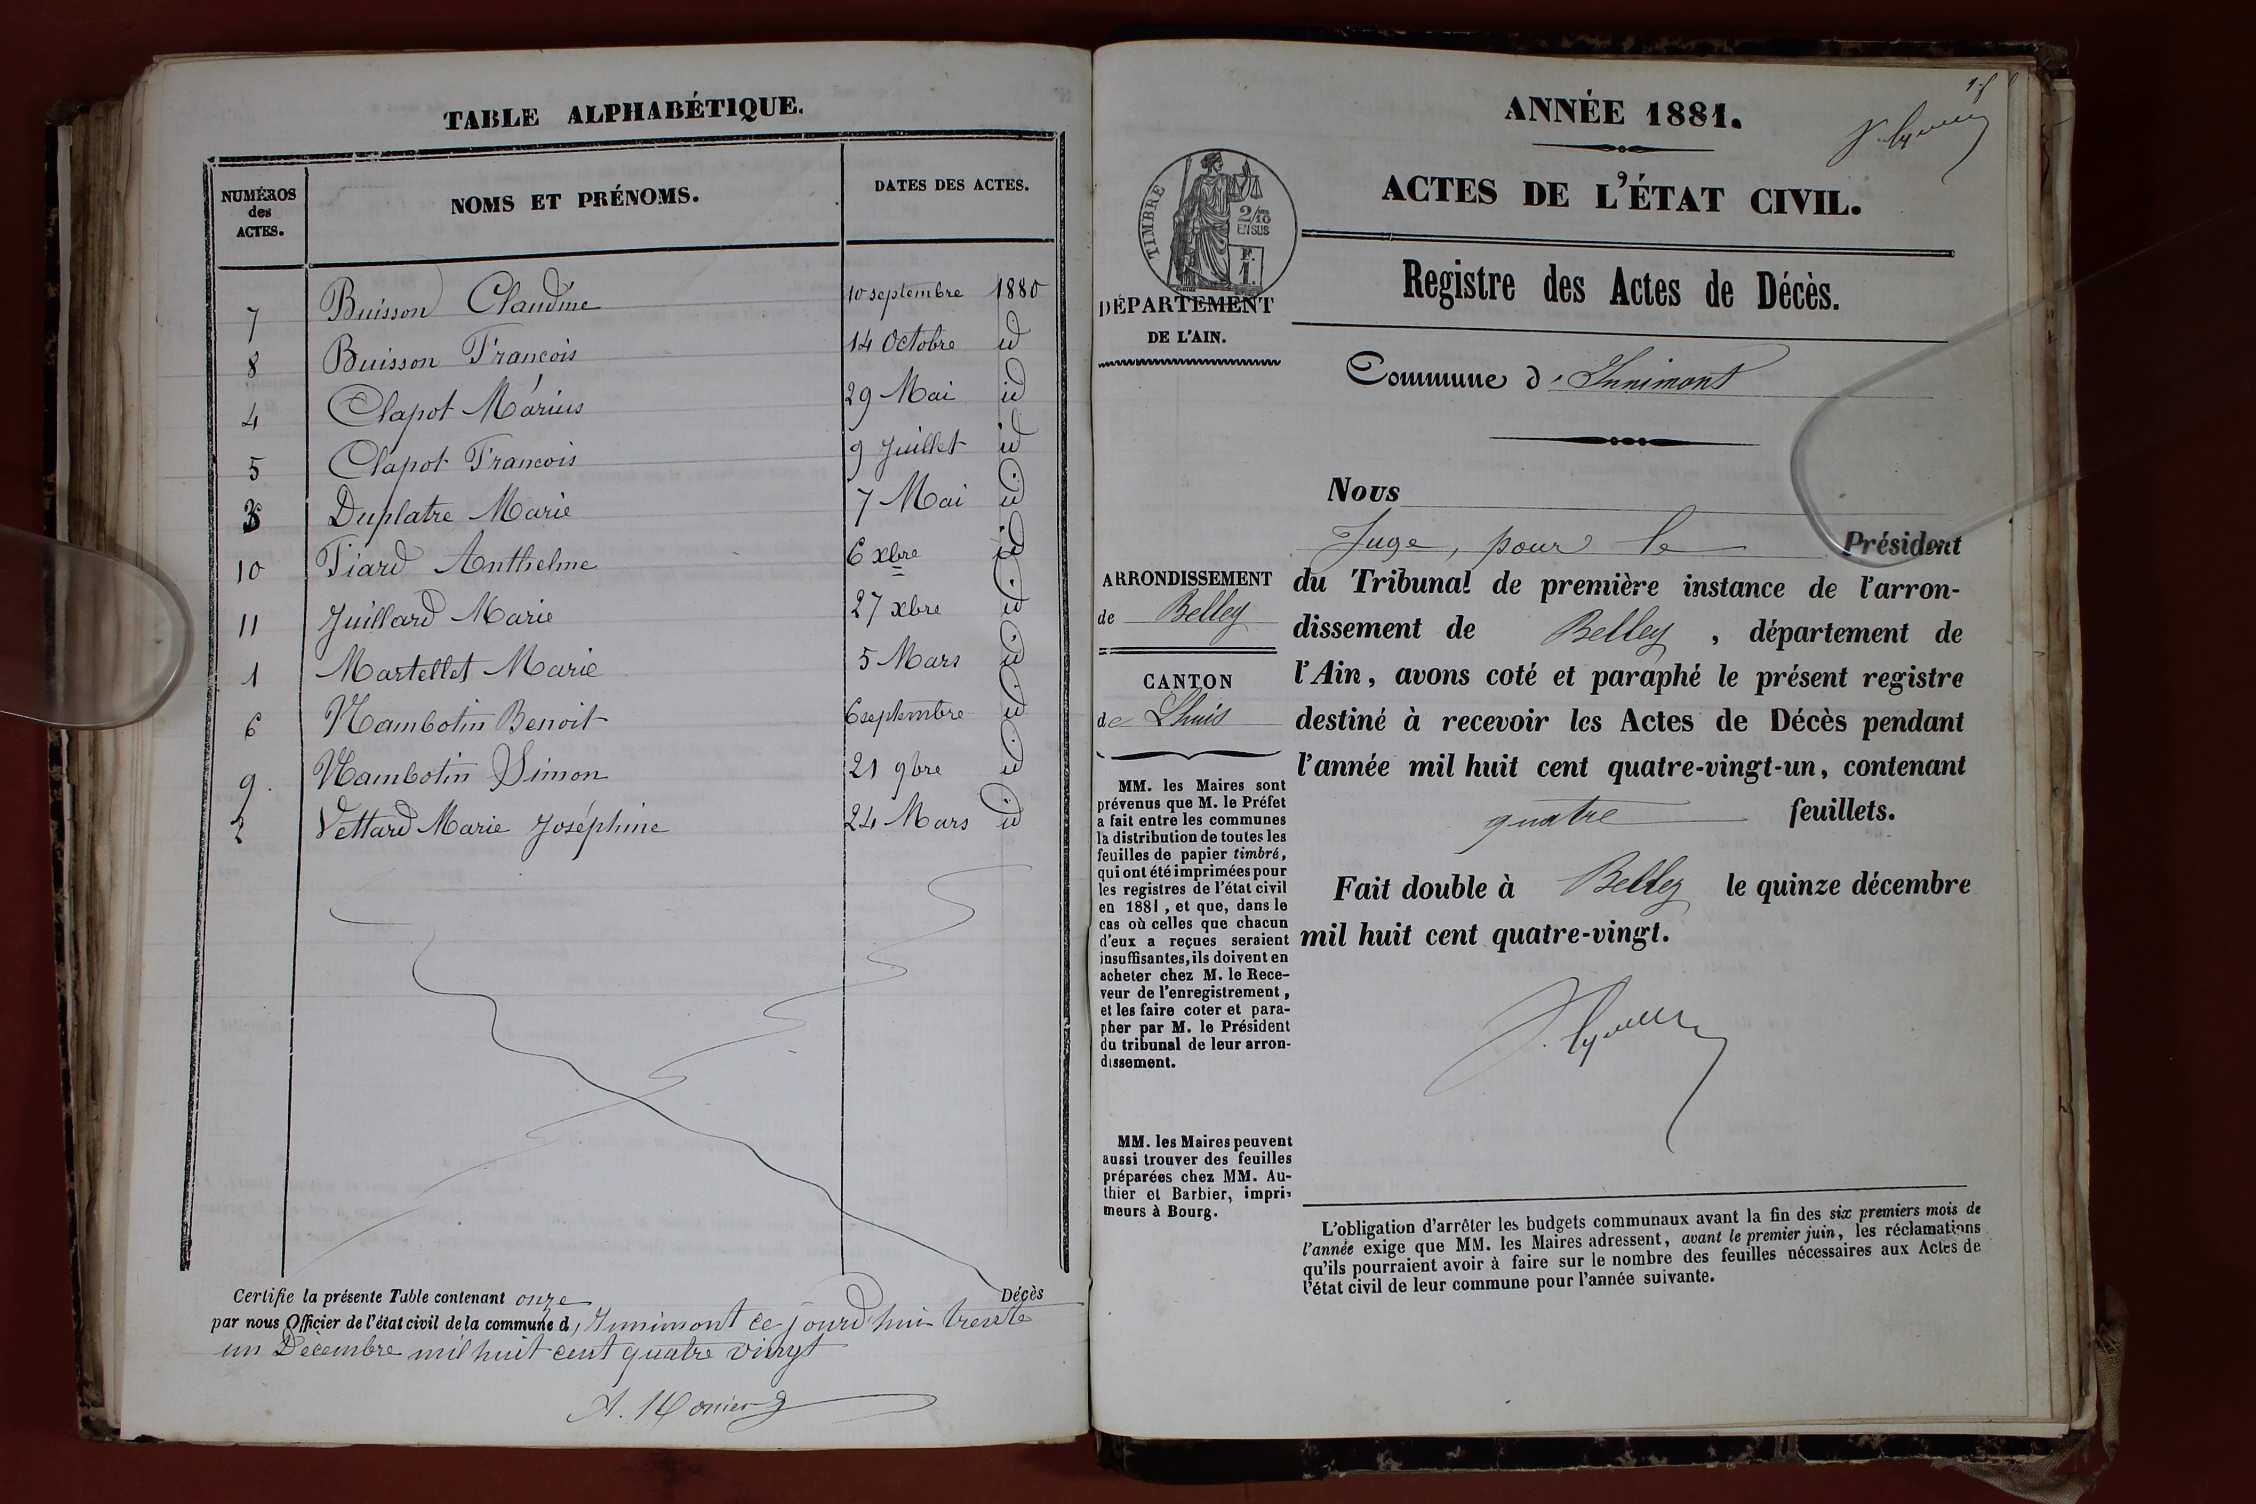 TABLE ALPHABÉTIQUE.
NUMÉROS des ACTES. NOMS ET PRÉNOMS. DATES DES ACTES.
7 Buisson Claudine 10 septembre 1880
8 Buisson Francois 14 Octobre id
4 Clapot Marius 29 Mai id
5 Clapot Francois 9 Juillet id
3 Duplatre Marie 7 Mai id
10 Tiard Anthelme 6 xbre id
11 Juillard Marie 27 xbre id
1 Martellet Marie 5 Mars id
6 Nambotin Benoit 6 septembre id
9. Nambotin Simon 21 9bre id
2 Vettard Marie Joséphine 24 Mars id
Certifie la présente Table contenant onze Décès
par nous Officier de l'état civil de la commune d'Innimont ce jourd'hui trente
un Décembre mil huit cent quatre vingt
ANNÉE 1881.
ACTES DE L'ÉTAT CIVIL.
TIMBRE
2/10
EN SUS
F.
1.
DÉPARTEMENT
DE L'AIN.
Registre des Actes de Décès.
Commune d'Innimont
ARRONDISSEMENT
de Belley
CANTON
de Lhuis
MM. les Maires sont
prévenus que M. le Préfet
a fait entre les communes
la distribution de toutes les
feuilles de papier timbré,
qui ont été imprimées pour
les registres de l'état civil
en 1881, et que, dans le
cas où celles que chacun
d'eux a reçues seraient
insuffisantes, ils doivent en
acheter chez M. le Rece-
veur de l'enregistrement,
et les faire coter et para-
pher par M. le Président
du tribunal de leur arron-
dissement.
MM. les Maires peuvent
aussi trouver des feuilles
préparées chez MM. Au-
thier et Barbier, impri-
meurs à Bourg.
Nous
Juge, pour le Président
du Tribunal de première instance de l'arron-
dissement de Belley, département de
l'Ain, avons coté et paraphé le présent registre
destiné à recevoir les Actes de Décès pendant
l'année mil huit cent quatre-vingt-un, contenant
quatre feuillets.
Fait double à Belley le quinze décembre
mil huit cent quatre-vingt.
L'obligation d'arrêter les budgets communaux avant la fin des six premiers mois de
l'année exige que MM. les Maires adressent, avant le premier juin, les réclamations
qu'ils pourraient avoir à faire sur le nombre des feuilles nécessaires aux Actes de
l'état civil de leur commune pour l'année suivante.